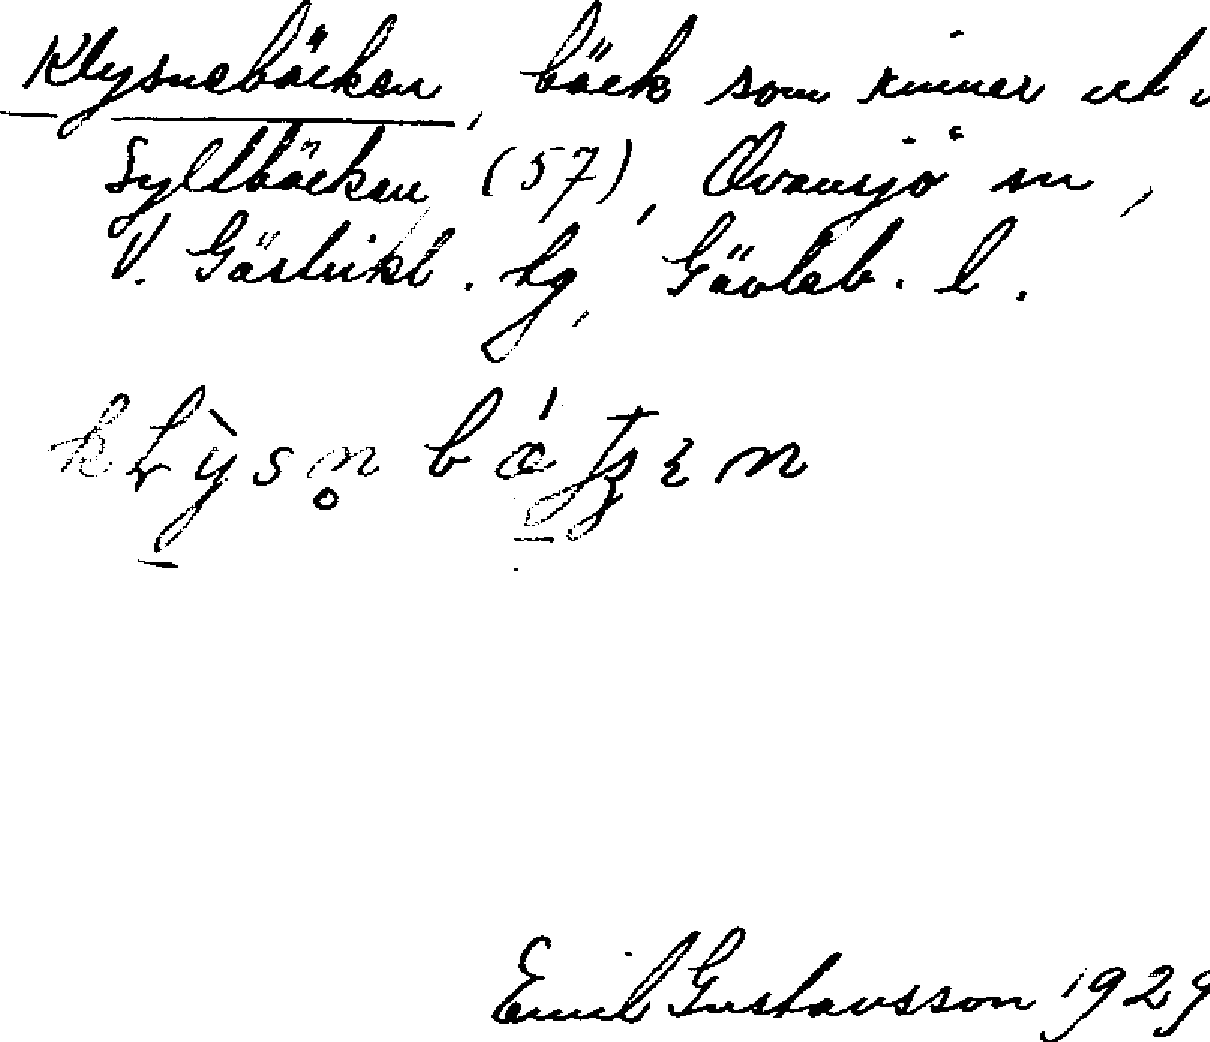 Klysnebäcken, bäck som rinner ut i
Syltbäcken (57), Ovansjö sn,
V. Gästrikl. hg, Gävleb. l.
Emil Gustavsson 1929